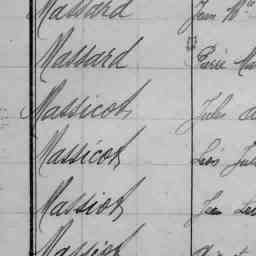 Massard Jean M
Massard Pierre Ma
Massicot Jules
Massicot Léon Jul
Massiot Jean Le
Massiot